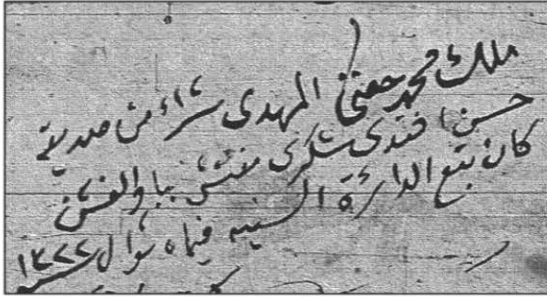 ملك محمد حفني المهدى شراء من صديقي
حسن افندى شكرى مفتش ببا والفشن
كان بتبع الدائرة السنيه في ١٥ شوال سنة ١٣٢٢